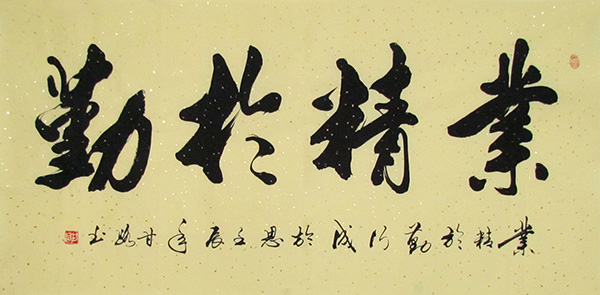 業精於勤
業精於勤行成於思壬辰年甘书